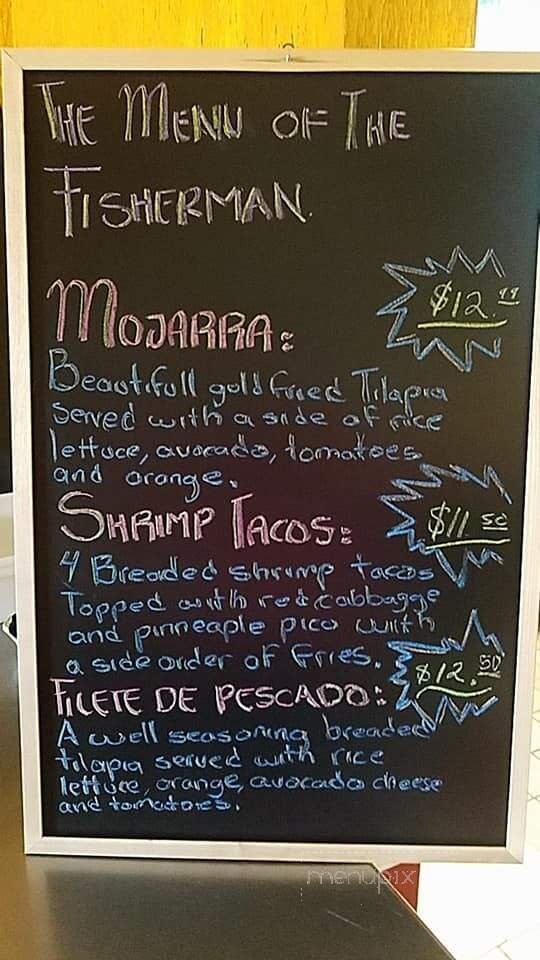 THE MENU OF THE
FISHERMAN.
MOJARRA:
$12.99
Beautifull gold fried Tilapia
Served with a side of rice
lettuce, avocado, tomatoes
and orange.
SHRIMP TACOS:
$11.50
4 Breaded shrimp tacos
Topped with red cabbagge
and pinneaple pico with
a side order of fries.
FILETE DE PESCADO:
$12.50
A well seasoning breaded
tilapia served with rice
lettuce, orange, avocado cheese
and tomatoes.
menupix